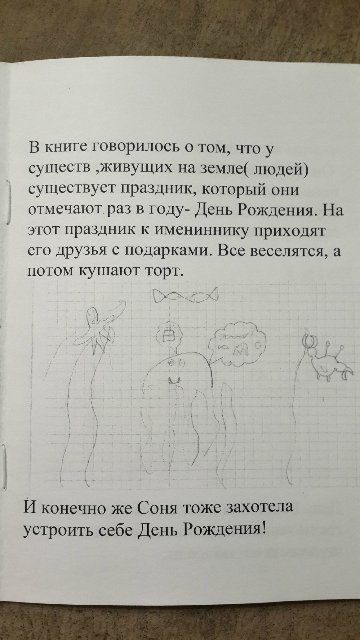 В книге говорилось о том, что у
существ ,живущих на земле( людей)
существует праздник, который они
отмечают раз в году- День Рождения. На
этот праздник к имениннику приходят
его друзья с подарками. Все веселятся, а
потом кушают торт.
И конечно же Соня тоже захотела
устроить себе День Рождения!